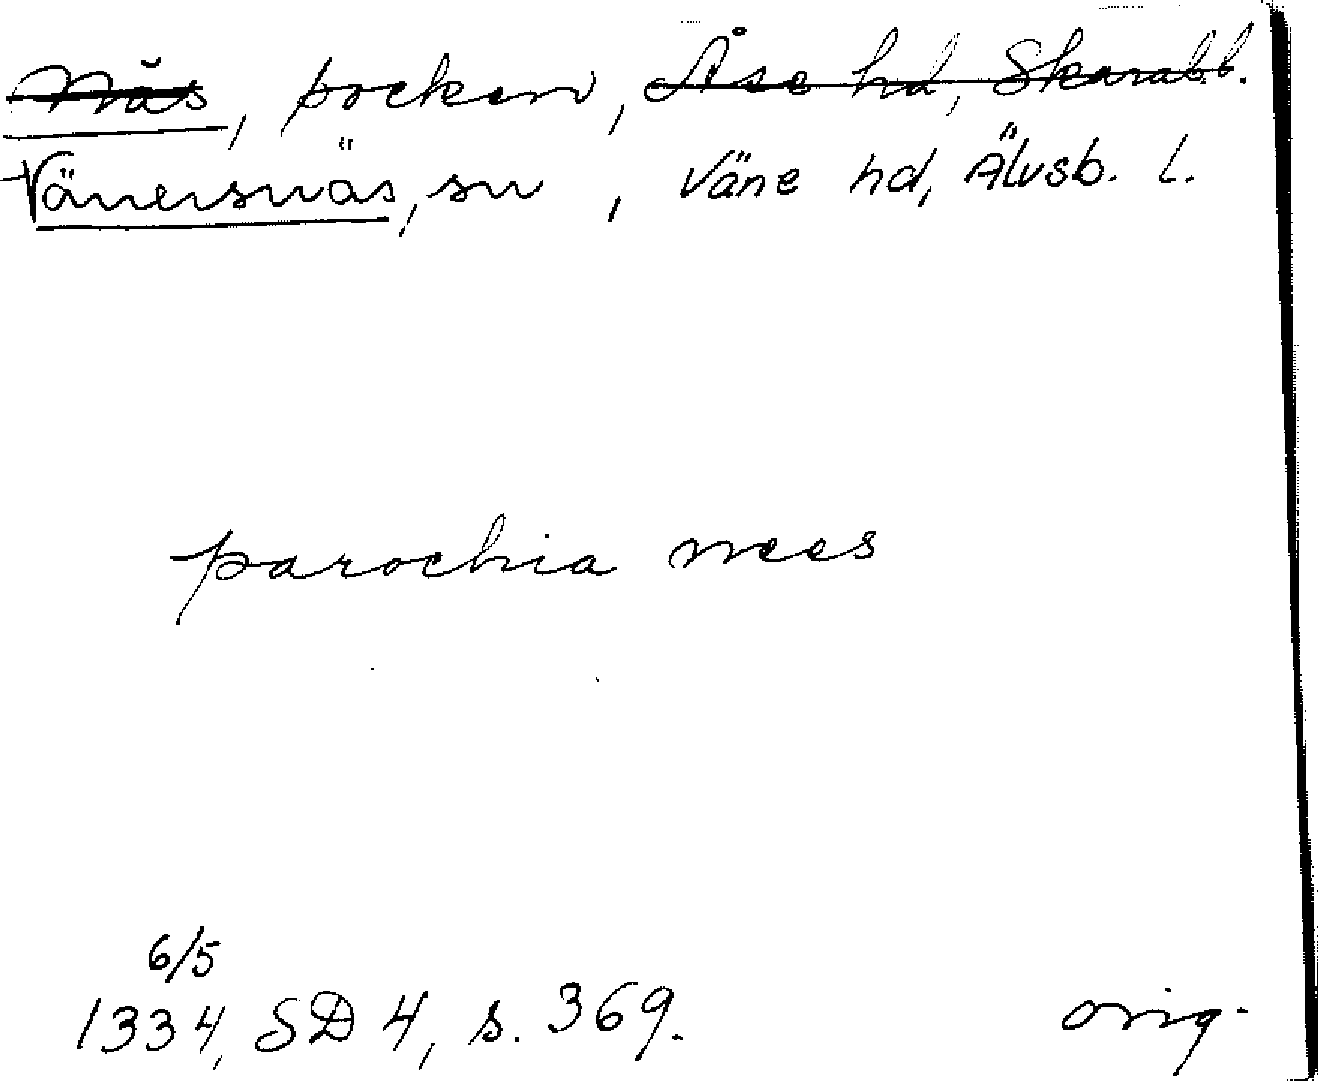 Näs, socken, Åse hd, Skarab.l.
Vänersnäs, sn, Väne hd, Älvsb. l.
parochia nees
6/5
1334, SD 4, s. 369.
orig.